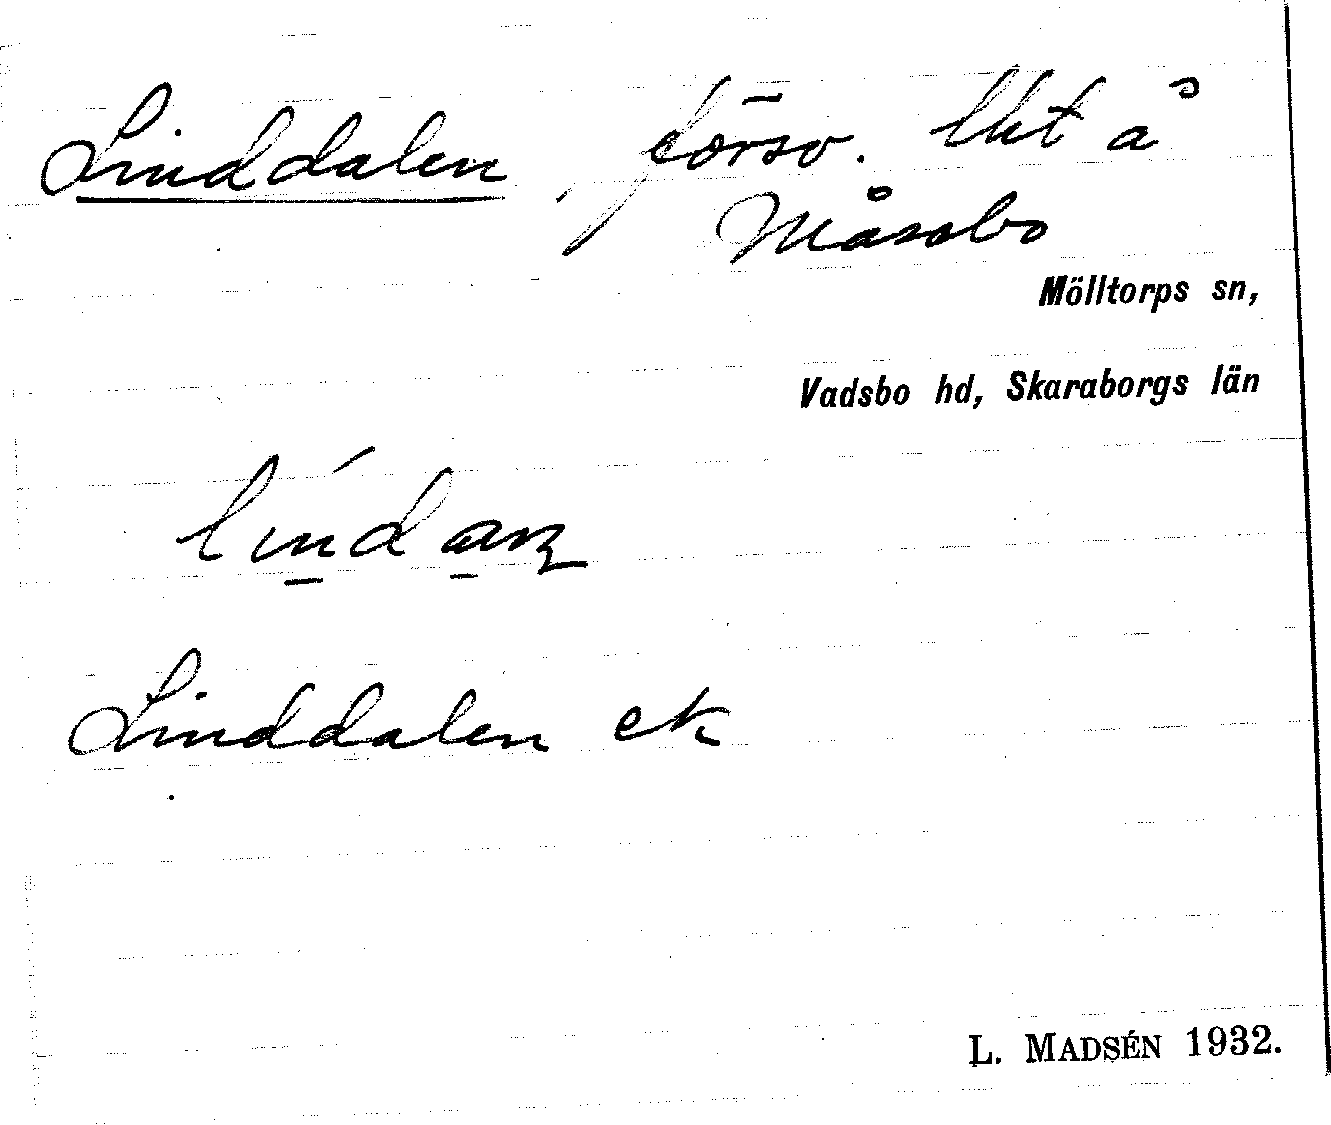 Linddalen, försv. lht å
Måssbo
Mölltorps sn,
Vadsbo hd, Skaraborgs län
Linddalen ek
L. MADSÉN 1932.